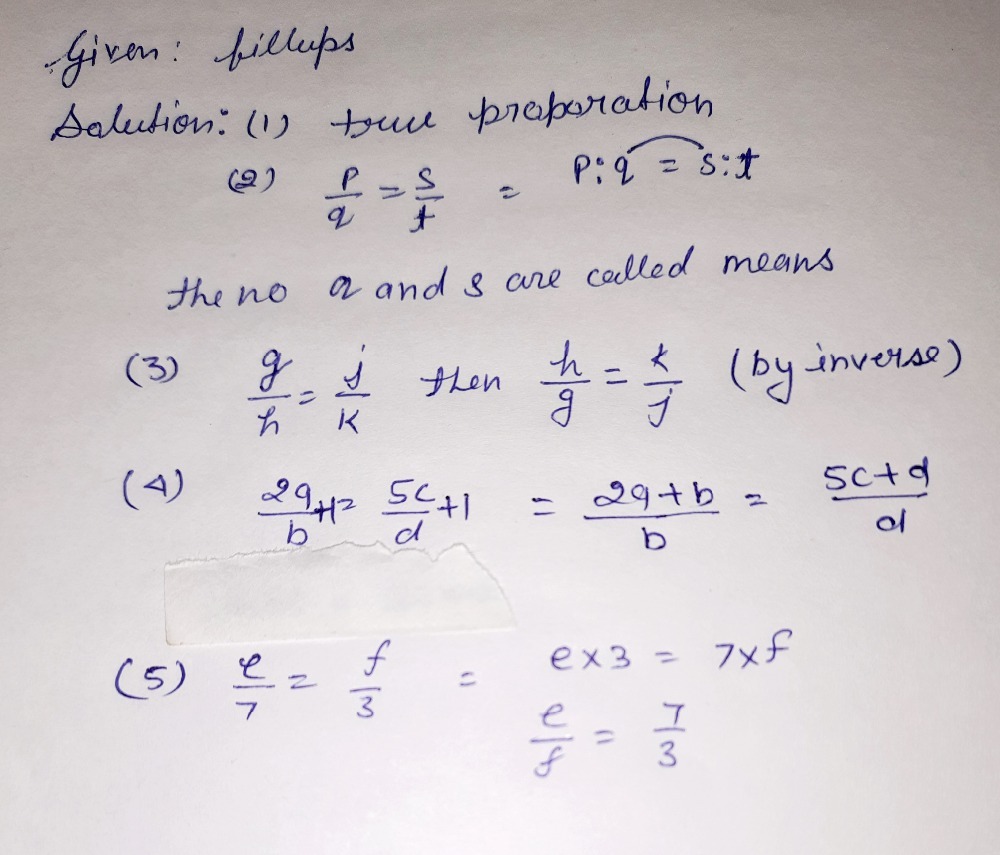 Given: fillups
Solution: (1) true praporation
(2) p/q = s/t = P:q = s:t
the no q and s are called means
(3) g/h = j/k then h/g = k/j (by inverse)
(4) 2a/b +1 = 5c/d +1 = 2a+b/b = 5c+d/d
(5) e/7 = f/3 = e×3 = 7×f
e/f = 7/3